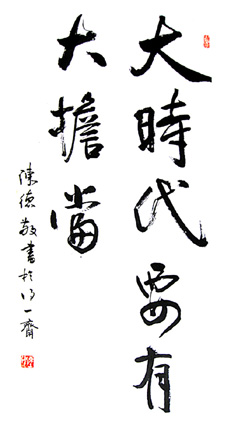 大時代要有
大擔當
陳德敬書於一齋